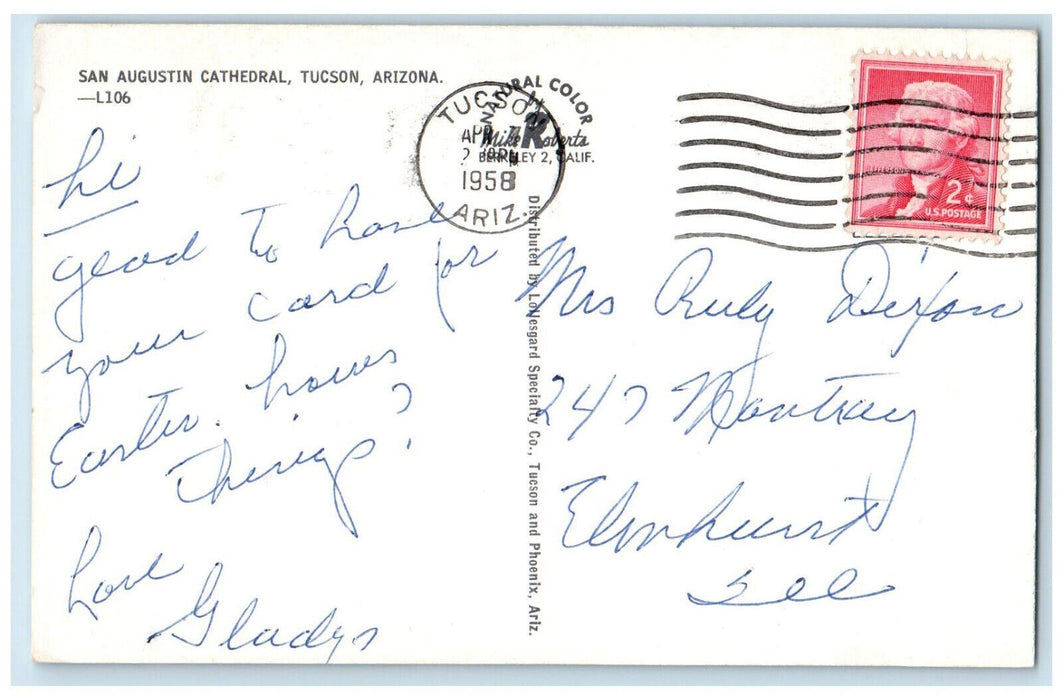 SAN AUGUSTIN CATHEDRAL, TUCSON, ARIZONA.
—L106
NATURAL COLOR
Mike Roberts
BERKELEY 2, CALIF.
TUCSON
APR 7
1958
ARIZ.
2¢
U.S. POSTAGE
hi
glad to have
your card for
Easter. hows
things?
Love
Gladys
Distributed by Lollesgard Specialty Co., Tucson and Phoenix, Ariz.
Mrs Ruby Dixon
247
Elmhurst
Ill